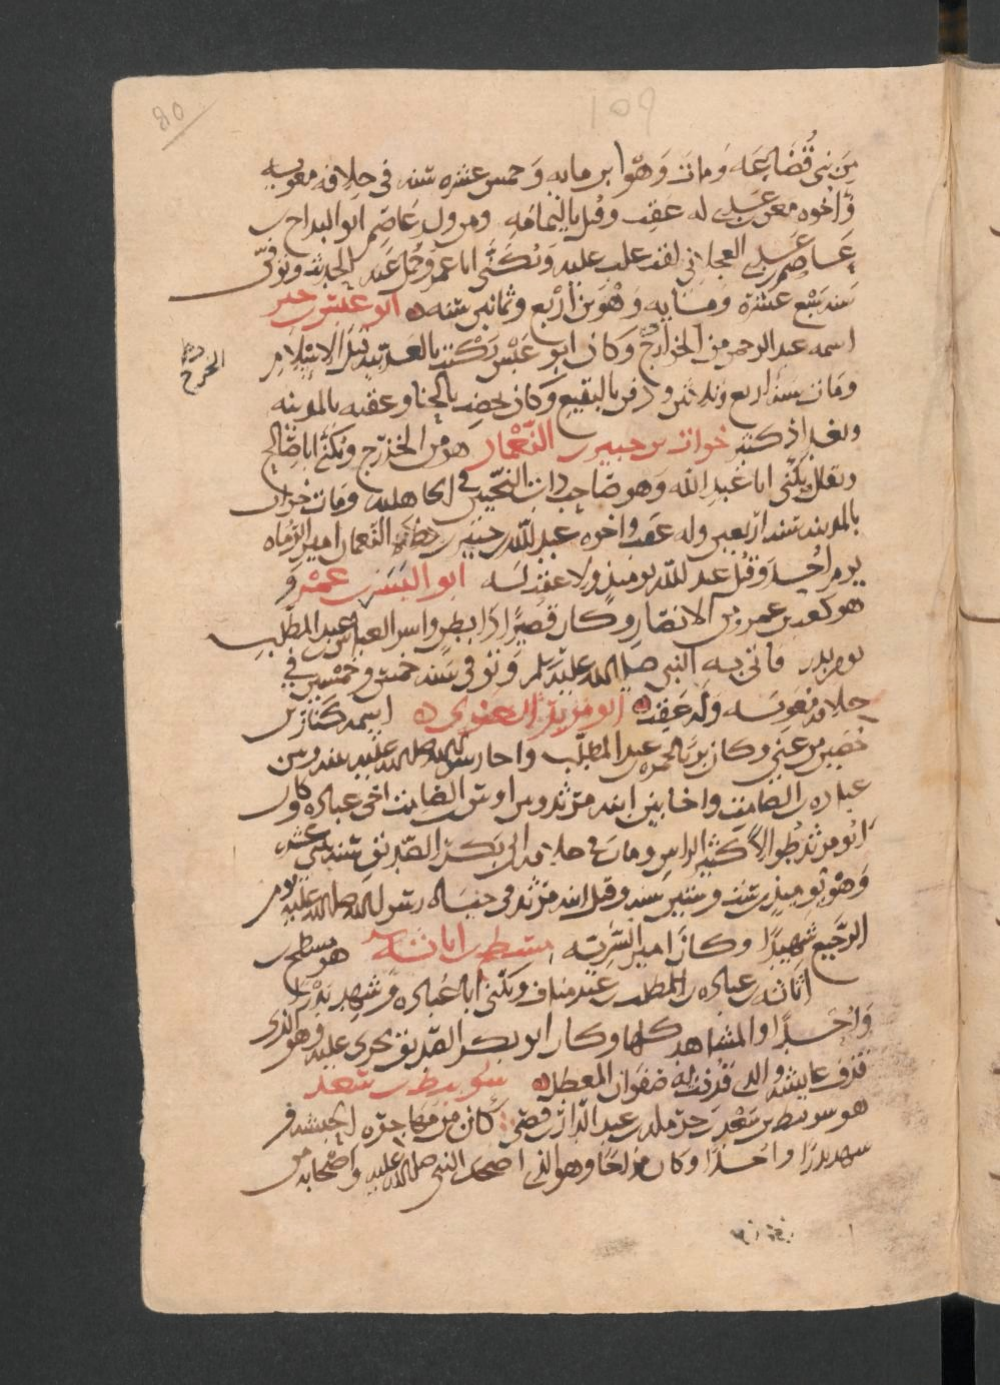 80
109
من بنى قضاعه ومات وهو ابن مايه وخمس عشره سنه فى خلافه معويه
واخوه معن بن عدى له عقب وقتل باليمامه ومن ولد عاصم ابو البداح بن
عاصم بن عدى العجلانى لقب غلب عليه ويكنى ابا عمرو وحمل عنه الحديث وتوفى
سنه سبع عشره ومايه وهو بن اربع وثمانين سنه ابو عبس بن جبر
اسمه عبد الرحمن من الخزارج وكان ابو عبس يكتب بالعربيه قبل الاسلام
الخزرج
ومات سنه اربع وثلثين ودفن بالبقيع وكان يخضب بالحنا وعقبه بالمدينه
وبغداد كثير خوات بن جبير بن النعمان هو من الخزرج ويكنى ابا صالح
ويقال يكنى ابا عبد الله وهو صاحب ذات النحيين فى الجاهليه ومات خوات
بالمدينه سنه اربعين وله عقب واخوه عبد الله بن جبير بن النعمان امير الرماه
يوم احد وقتل عبد الله يوميذ ولا عقب له ابو اليسر بن عمرو
هو كعب بن عمرو من الانصار وكان قصيرا ذا بطن واسر العباس بن عبد المطلب
يوم بدر فاتى به النبى صلى الله عليه وسلم وتوفى سنه خمس وخمسين فى
خلافه معويه وله عقب ابو مرثد الغنوى اسمه كناز بن
حصين من غنى وكان ترب الحمزه بن عبد المطلب واخا رسول الله صلى الله عليه بينه وبين
عباده بن الصامت واخا بين ابنه مرثد وبين اوس بن الصامت اخى عباده وكان
ابو مرثد طوالا كثير الراس ومات فى خلافه ابى بكر الصديق سنه اثنى عشر
وهو يوميذ بن ست وستين سنه وقتل ابنه مرثد فى حياه رسول الله صلى الله عليه يوم
الرجيع شهيدا وكان امير السريه مسطح بن اثاثه هو مسطح بن
اثاثه بن عباده بن المطلب بن عبد مناف ويكنى ابا عباده وشهد بدرا
واحدا والمشاهد كلها وكان ابو بكر الصديق يجرى عليه وهو الذى
قذف عايشه والذى قذفت له صفوان المعطل سويبط بن سعد
هو سويبط بن سعد بن حرمله بن عبد الدار بن قصى كان من مهاجره الحبشه
شهد بدرا واحدا وكان مزاحا وهو الذى اضحك النبى صلى الله عليه واصحابه من